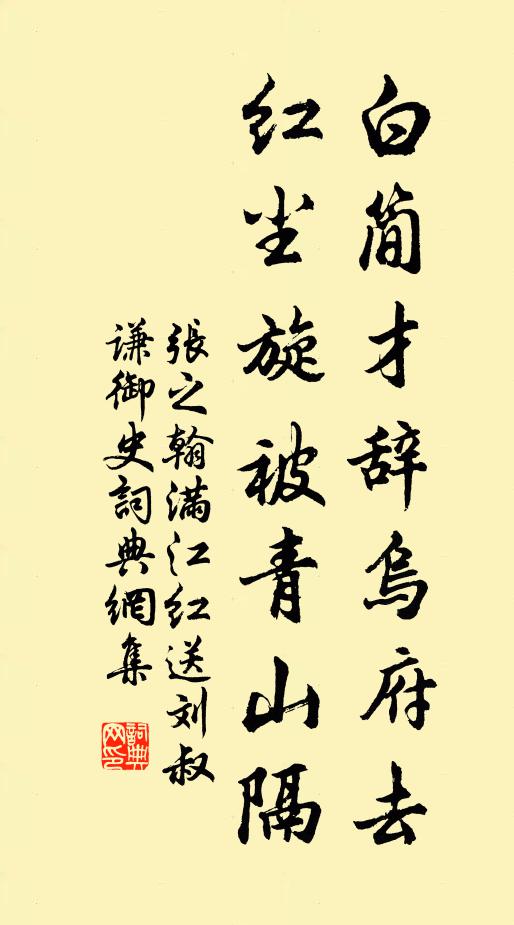 白简才辞烏府去
红尘旋被青山隔
張之翰满江红送刘叔
谦御史詞典網集
詞典网印